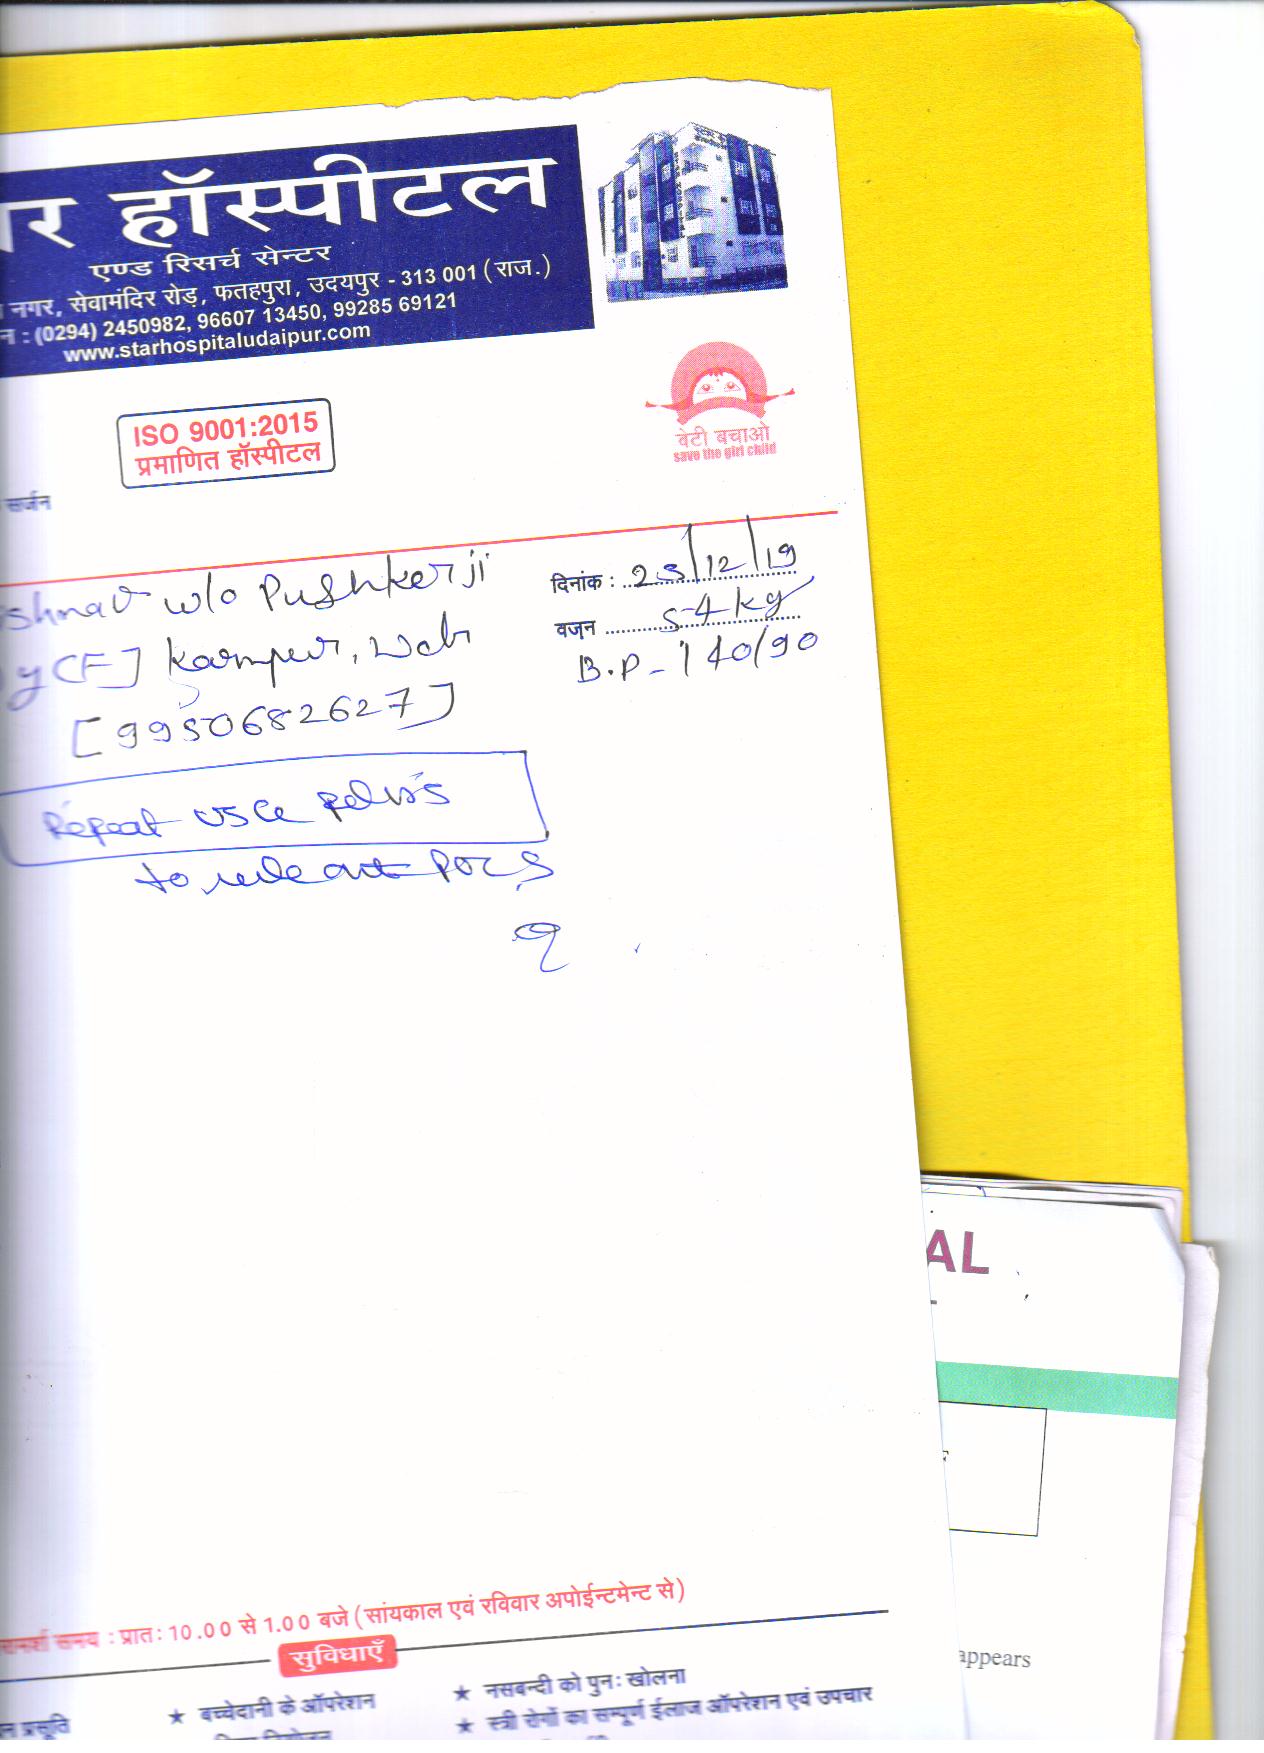 हॉस्पीटल
एण्ड रिसर्च सेन्टर
नगर, सेवामंदिर रोड़, फतहपुरा, उदयपुर - 313 001 (राज.)
न : (0294) 2450982, 96607 13450, 99285 69121
www.starhospitaludaipur.com
ISO 9001:2015
प्रमाणित हॉस्पीटल
बेटी बचाओ
save the girl child
सर्जन
shnav w/o Pushkerji
दिनांक : 23/12/19
वजन 54 kg
y (F] Karnpur,
B.P - 140/90
[9950682627]
Repeat USG pelvis
to rule out PCOS
AL
appears
समय : प्रातः 10.00 से 1.00 बजे (सांयकाल एवं रविवार अपोईन्टमेन्ट से)
सुविधाएँ
न प्रसूति
★ बच्चेदानी के ऑपरेशन
★ नसबन्दी को पुनः खोलना
★ स्त्री रोगों का सम्पूर्ण ईलाज ऑपरेशन एवं उपचार